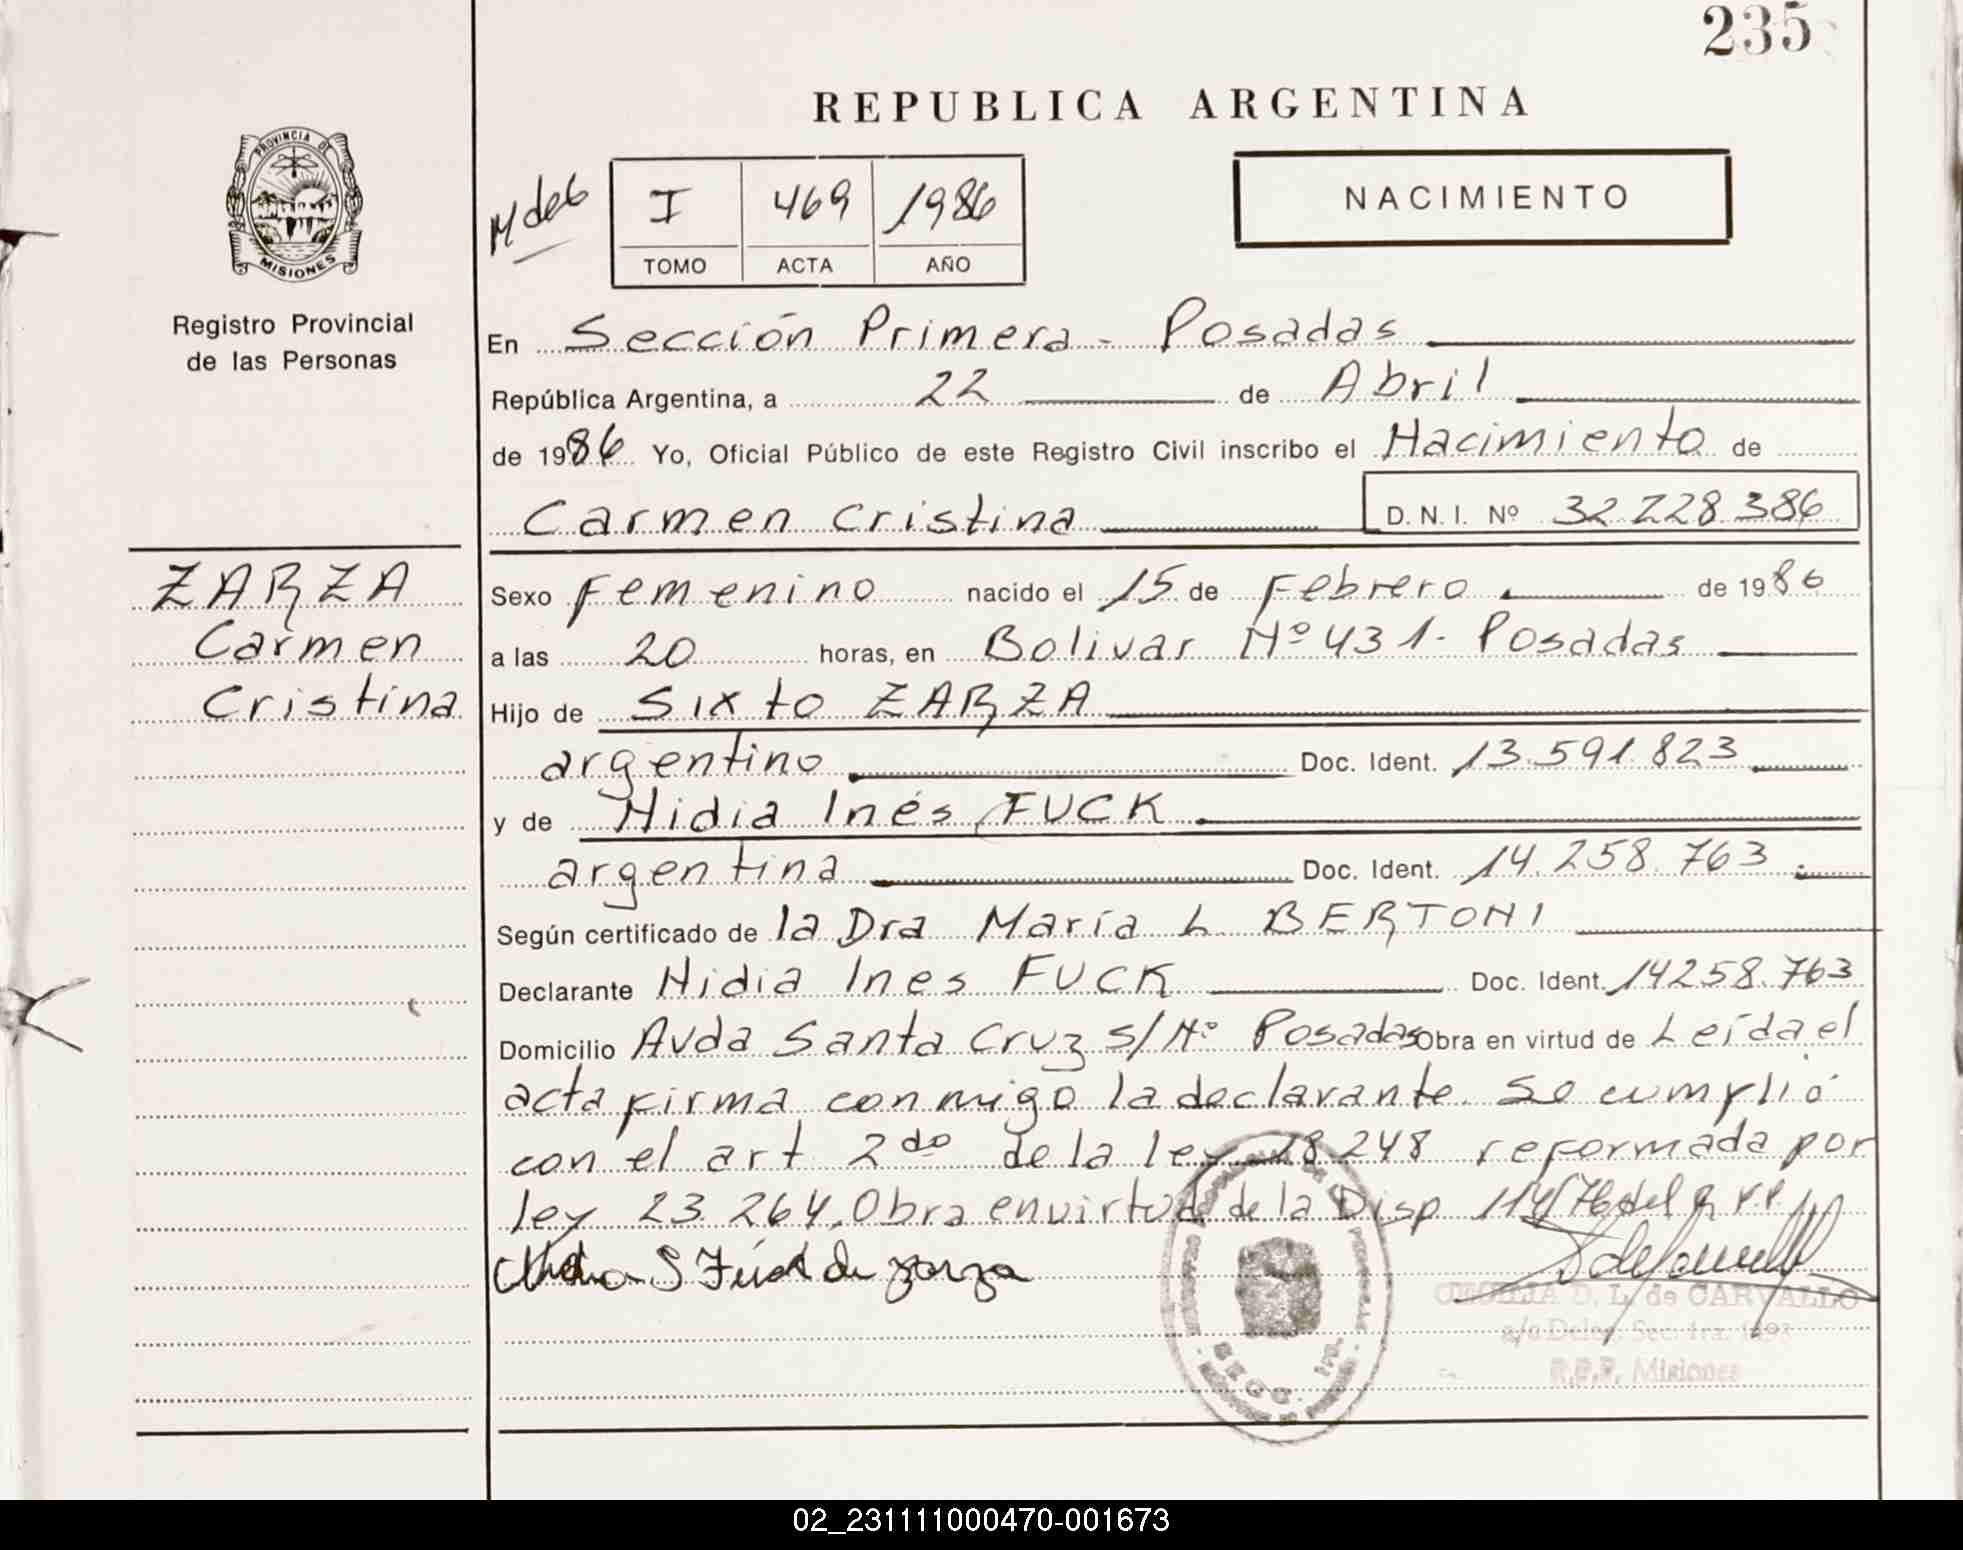 235
REPUBLICA ARGENTINA
PROVINCIA DE
MISIONES
Registro Provincial
de las Personas
M deb
I 469 1986
TOMO ACTA AÑO
NACIMIENTO
En Sección Primera - Posadas
República Argentina, a 22 de Abril
de 1986 Yo, Oficial Público de este Registro Civil inscribo el Nacimiento de
Carmen Cristina D. N. I. Nº 32 228 386
ZARZA
Carmen
Cristina
Sexo Femenino nacido el 15 de Febrero de 1986
a las 20 horas, en Bolivar Nº 431 - Posadas
Hijo de Sixto ZARZA
argentino Doc. Ident. 13.591.823
y de Nidia Inés FUCK
argentina Doc. Ident. 14.258.763
Según certificado de la Dra María L BERTONI
Declarante Nidia Ines FUCK Doc. Ident. 14258.763
Domicilio Avda Santa Cruz s/Nº Posadas Obra en virtud de Leída el
acta firma conmigo la declarante. Se cumplió
con el art 2do de la ley 18.248 reformada por
ley 23.264. Obra en virtud de la Disp 114/76 del R.P.P.
de Zarza
SECC. 1ra.
D. L. de CARVALLO
a/c Deleg. Sec. 1ra.
R.P.P. Misiones
02_231111000470-001673